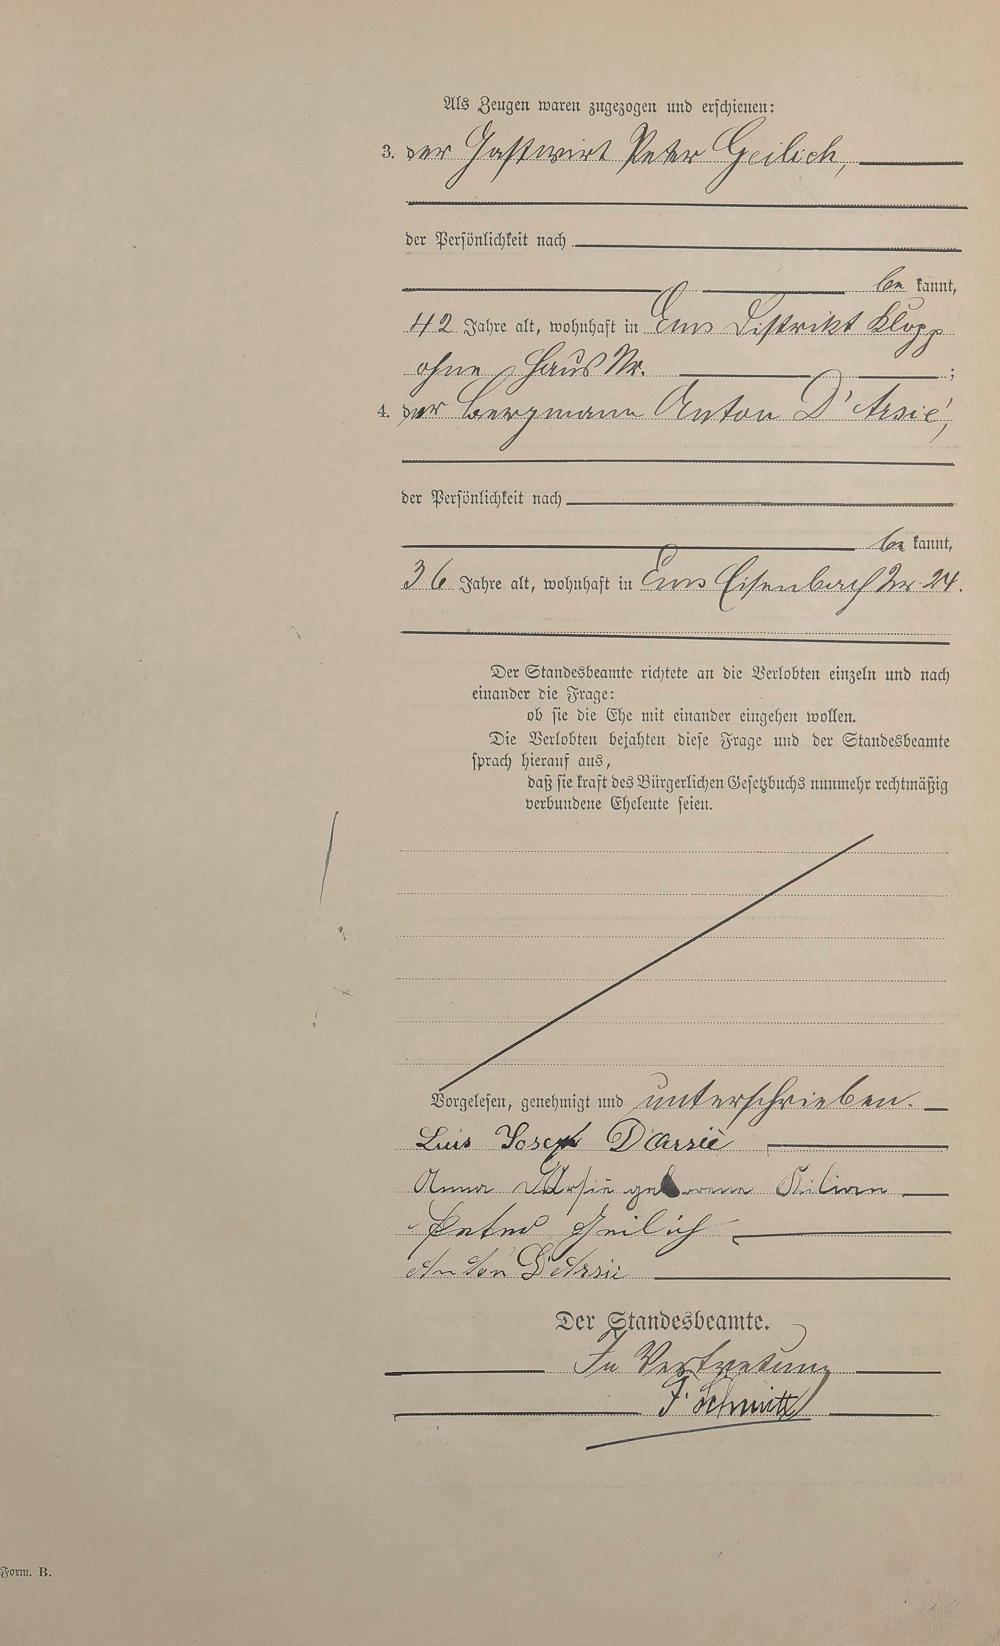 Als Zeugen waren zugezogen und erschienen:
3. der Gastwirt Peter Geilich,
der Persönlichkeit nach
be kannt,
42 Jahre alt, wohnhaft in Ems Distrikt Klopp
ohne Haus Nr. ;
4. der Bergmann Anton D'Arsié,
der Persönlichkeit nach
be kannt,
36 Jahre alt, wohnhaft in Ems Eisenbach Nr. 24.
Der Standesbeamte richtete an die Verlobten einzeln und nach
einander die Frage:
ob sie die Ehe mit einander eingehen wollen.
Die Verlobten bejahten diese Frage und der Standesbeamte
sprach hierauf aus,
daß sie kraft des Bürgerlichen Gesetzbuchs nunmehr rechtmäßig
verbundene Eheleute seien.
Vorgelesen, genehmigt und unterschrieben.
Luis Joseph D'Arsiè
Anna D'Arsie geborene Kilian
Peter Geilich
Anton D'Arsie
Der Standesbeamte.
In Vertretung
F. Schmitt
Form. B.